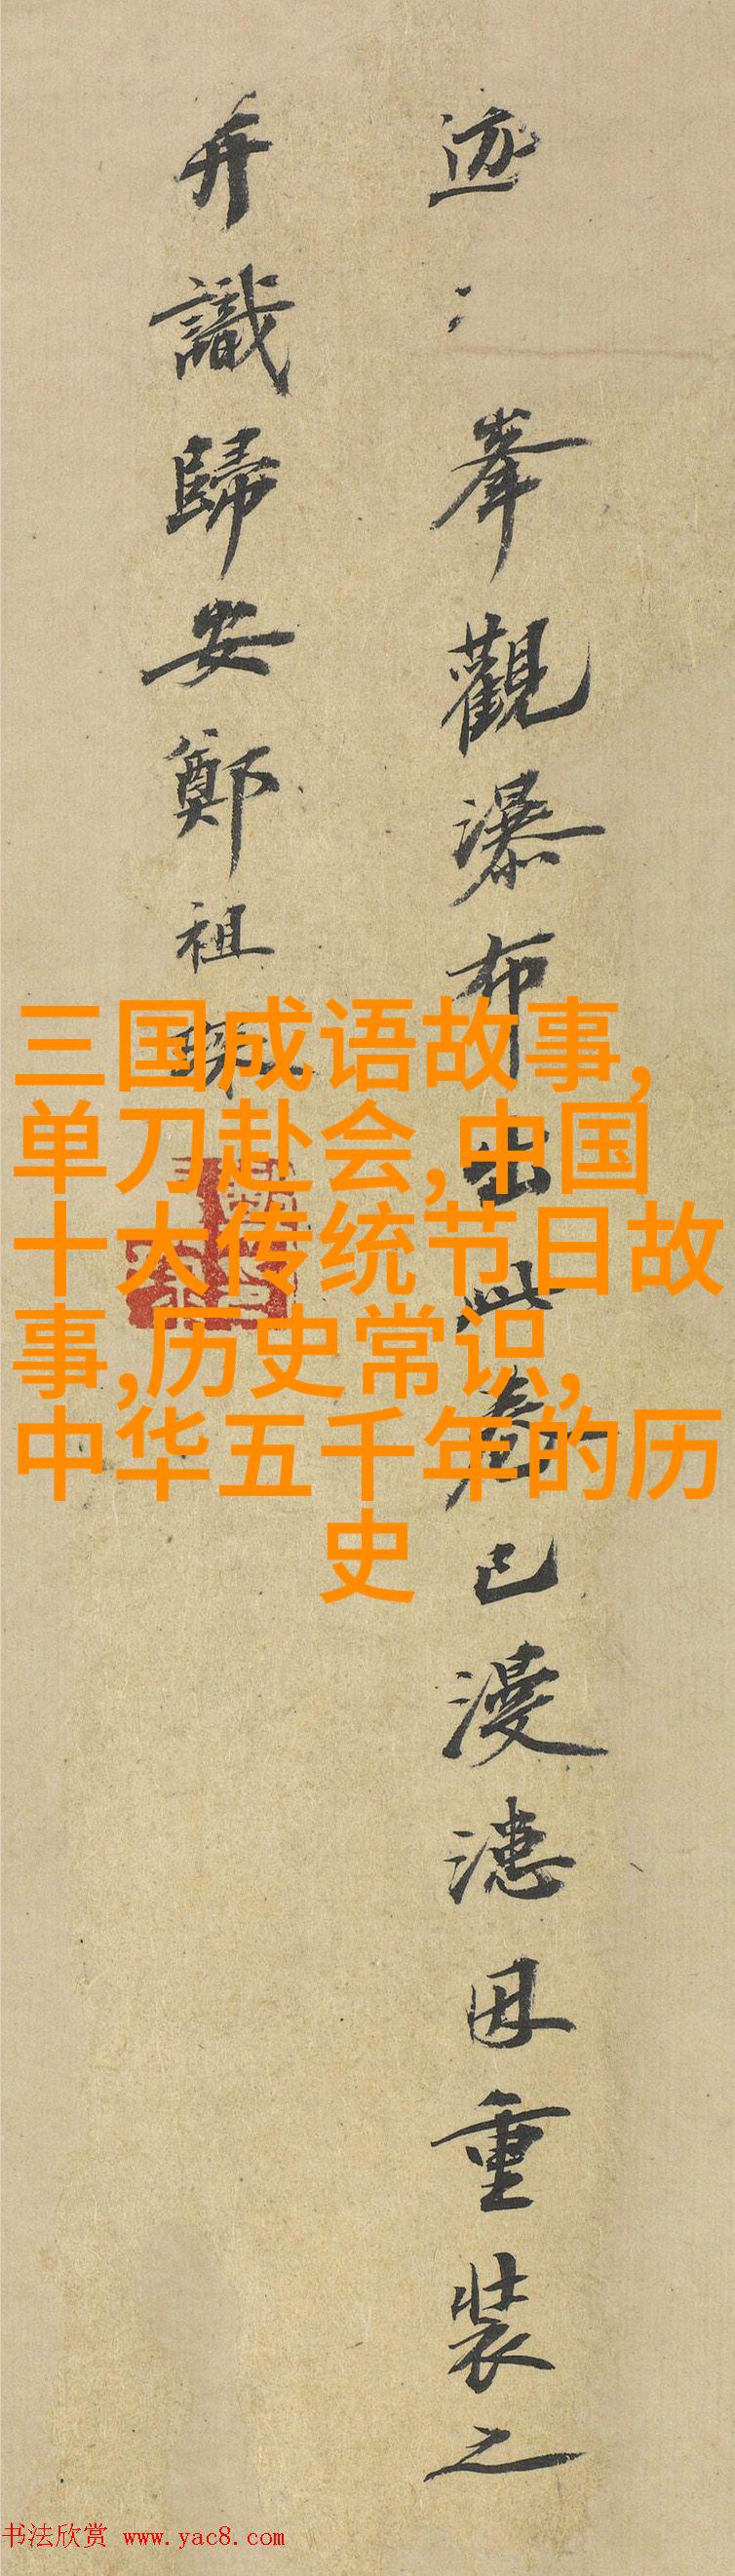 迹〻峯觀瀑布出此卷已漫漶因重裝之
并識歸安鄭祖琛
三国成语故事,
单刀赴会,中国
十大传统节日故
事,历史常识,
中华五千年的历
史
书法欣赏 www.yac8.com